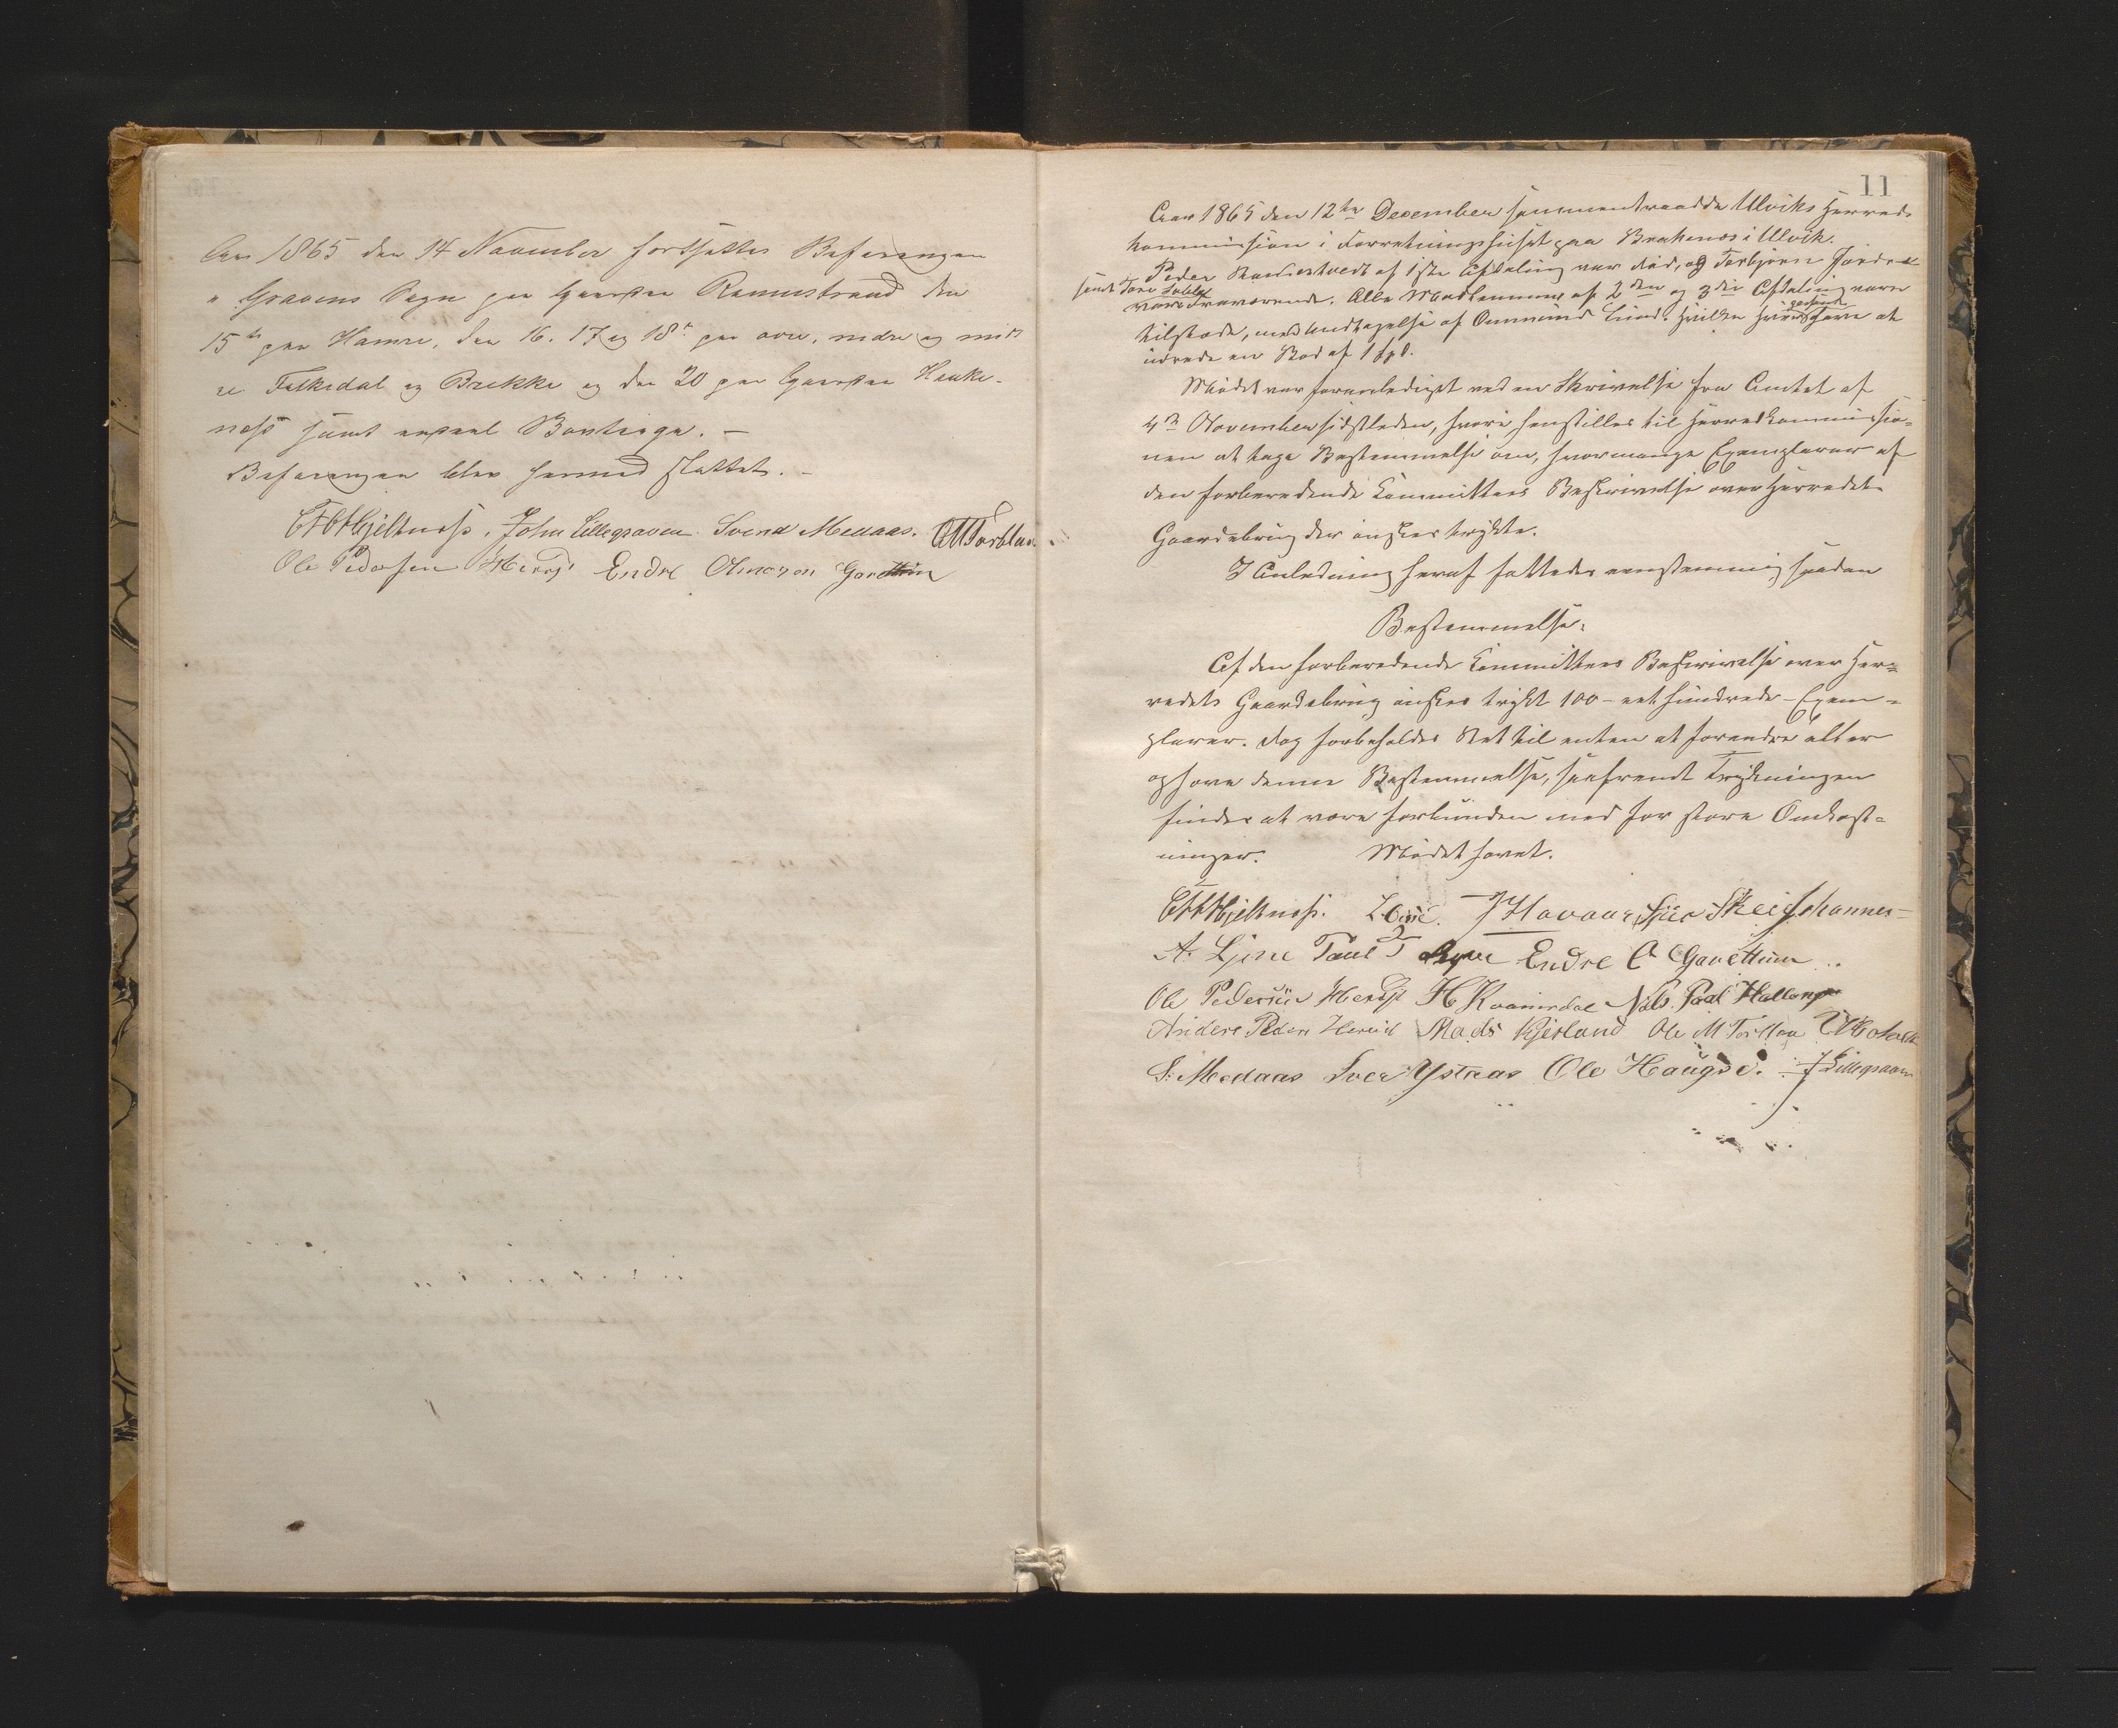 Aar 1865 den 14 November fortsattes Befaringen
i Gravens Sogn paa Gaarden Ramnestrand den
15de paa Hamre, den 16. 17 og 18de paa øvre, nedre og midt
re Folkedal og Brekke og den 20 paa Gaarden Hauke-
næss samt Bontvege. —
Befaringen blev hermed sluttet. —
Hjeltnæss. John Lillegraven Svend Medaas. OMTorblaa.
Ole Pedersen Herejs Endre Olmozon Garethun
11
Aar 1865 den 12te December sammentraadte Ulviks Herreds
kommission i Forretningshuset paa Brakenæs i Ulvik.
Peder af 1ste Afdeling var død, og Torbjørn
samt Tore
vare Fraværende. Alle Medlemmer af 2den og 3die Afdeling vare
tilstede, med Undtagelse af Ommund Lund. Hvilken
udrede en Bod af 1 Spd.
Mødet var foranlediget ved en Skrivelse fra Amtet af
4de November sidstleden, hvori henstilles til Herredskommissio-
nen at tage Bestemmelse om, hvormange Exemplarer af
den forberedende Committees Beskrivelse over Herredets
Gaardsbrug der ønskes trykte.
I Anledning heraf fattedes eenstemmig saadan
Bestemmelse:
Af den forberedende Committees Beskrivelse over Her-
redets Gaardsbrug ønskes trykt 100 – eet hundrede – Exem-
plarer. Dog forbeholdes Ret til enten at forandre eller
ophæve denne Bestemmelse, saafremt Trykningen
findes at være forbunden med for store Omkost-
ninger. Mødet hævet.
Hjeltnæss. J Havaas Skeie Johannes
A. Ljone Paul Endre O Garetthun
Ole Pedersen Herejs H Kvamsdal Nils Hallanger
Anders Peders Hereid Mads Kjerland Ole M Torblaa
S. Medaas Sver Ystaas Ole Haugse. J Lillegraven